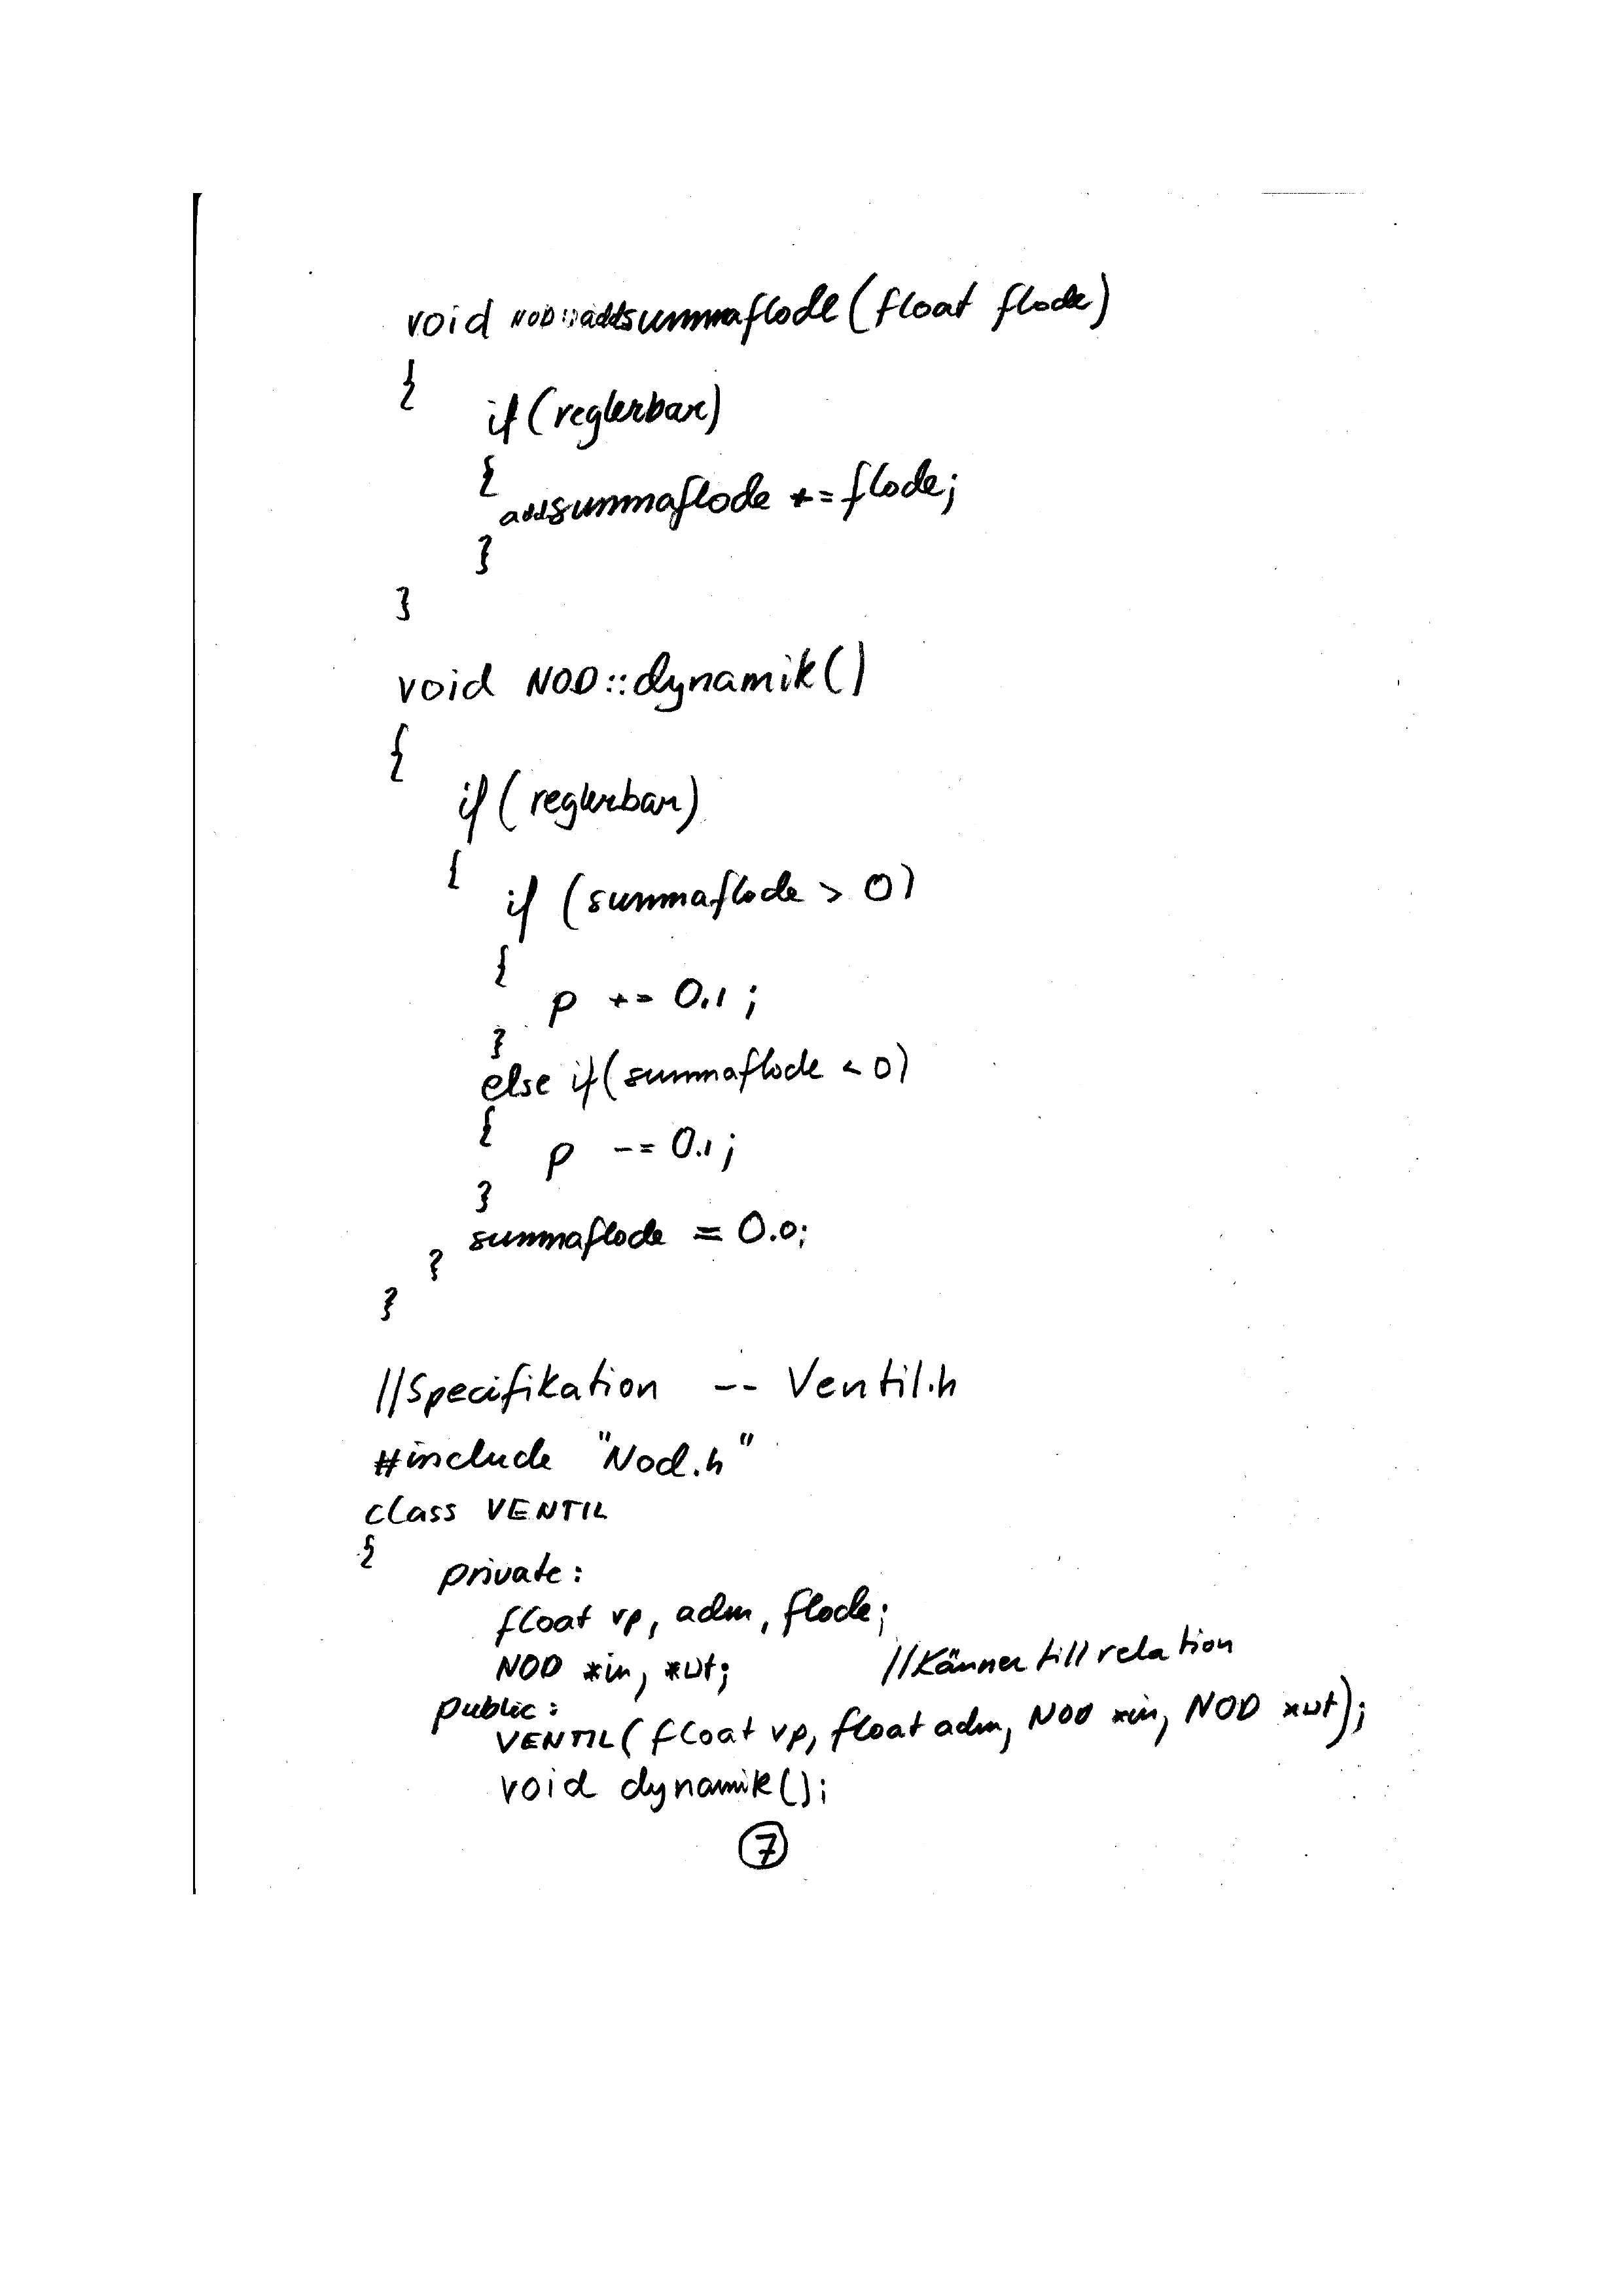 void NOD::addsummaflode(float flode)
{
if(reglerbar)
{
addsummaflode += flode;
}
}
void NOD::dynamik()
{
if(reglerbar)
{
if (summaflode > 0)
{
p += 0.1;
}
else if(summaflode < 0)
{
p -= 0.1;
}
summaflode = 0.0;
}
}
//Specifikation -- Ventil.h
#include "Nod.h"
class VENTIL
{
private:
float vp, adm, flode;
NOD *in, *ut; //Känner till relation
public:
VENTIL(float vp, float adm, NOD *in, NOD *ut);
void dynamik();
7